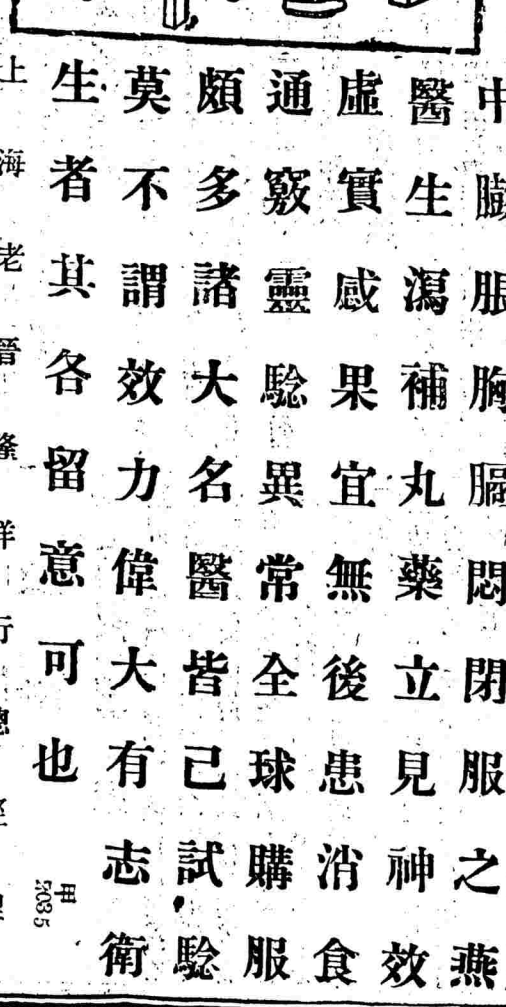 中膨脹胸膈悶閉服之燕
醫生瀉補丸藥立見神效
虛實感果宜無後患消食
通竅靈騐異常全球購服
頗多諸大名醫皆己試騐
莫不謂效力偉大有志衛
生者其各留意可也
甲5035
上海老晉隆洋行總經理